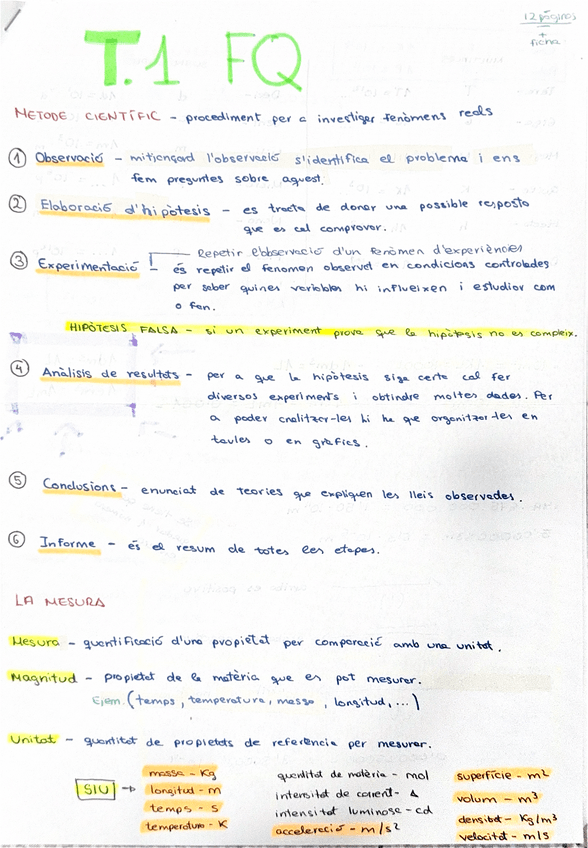 12 pàgines
+
ficha
T.1 FQ
METODE CIENTÍFIC - procediment per a investigar fenòmens reals
1 Observació - mitjançant l'observació s'identifica el problema i ens
fem preguntes sobre aquest.
2 Elaboració d'hipòtesis - es tracta de donar una possible resposta
que es cal comprovar.
Repetir l'observació d'un fenòmen d'experiències
3 Experimentació - és repetir el fenomen observat en condicions controlades
per saber quines variables hi influeixen i estudiar com
o fan.
HIPÒTESIS FALSA - si un experiment prova que la hipòtesis no es compleix.
4 Anàlisis de resultats - per a que la hipòtesis siga certa cal fer
diversos experiments i obtindre moltes dades. Per
a poder analitzar-les hi ha que organitzar-les en
taules o en gràfics.
5 Conclusions - enunciat de teories que expliquen les lleis observades.
6 Informe - és el resum de totes les etapes.
LA MESURA
Mesura - quantificació d'una propietat per comparació amb una unitat.
Magnitud - propietat de la matèria que es pot mesurar.
Ejem. (temps, temperatura, massa, longitud, ...)
Unitat - quantitat de propietats de referència per mesurar.
massa - Kg quantitat de matèria - mol superfície - m²
SIU → longitud - m intensitat de corrent - A volum - m³
temps - s intensitat luminosa - cd densitat - Kg/m³
temperatura - K acceleració - m/s² velocitat - m/s